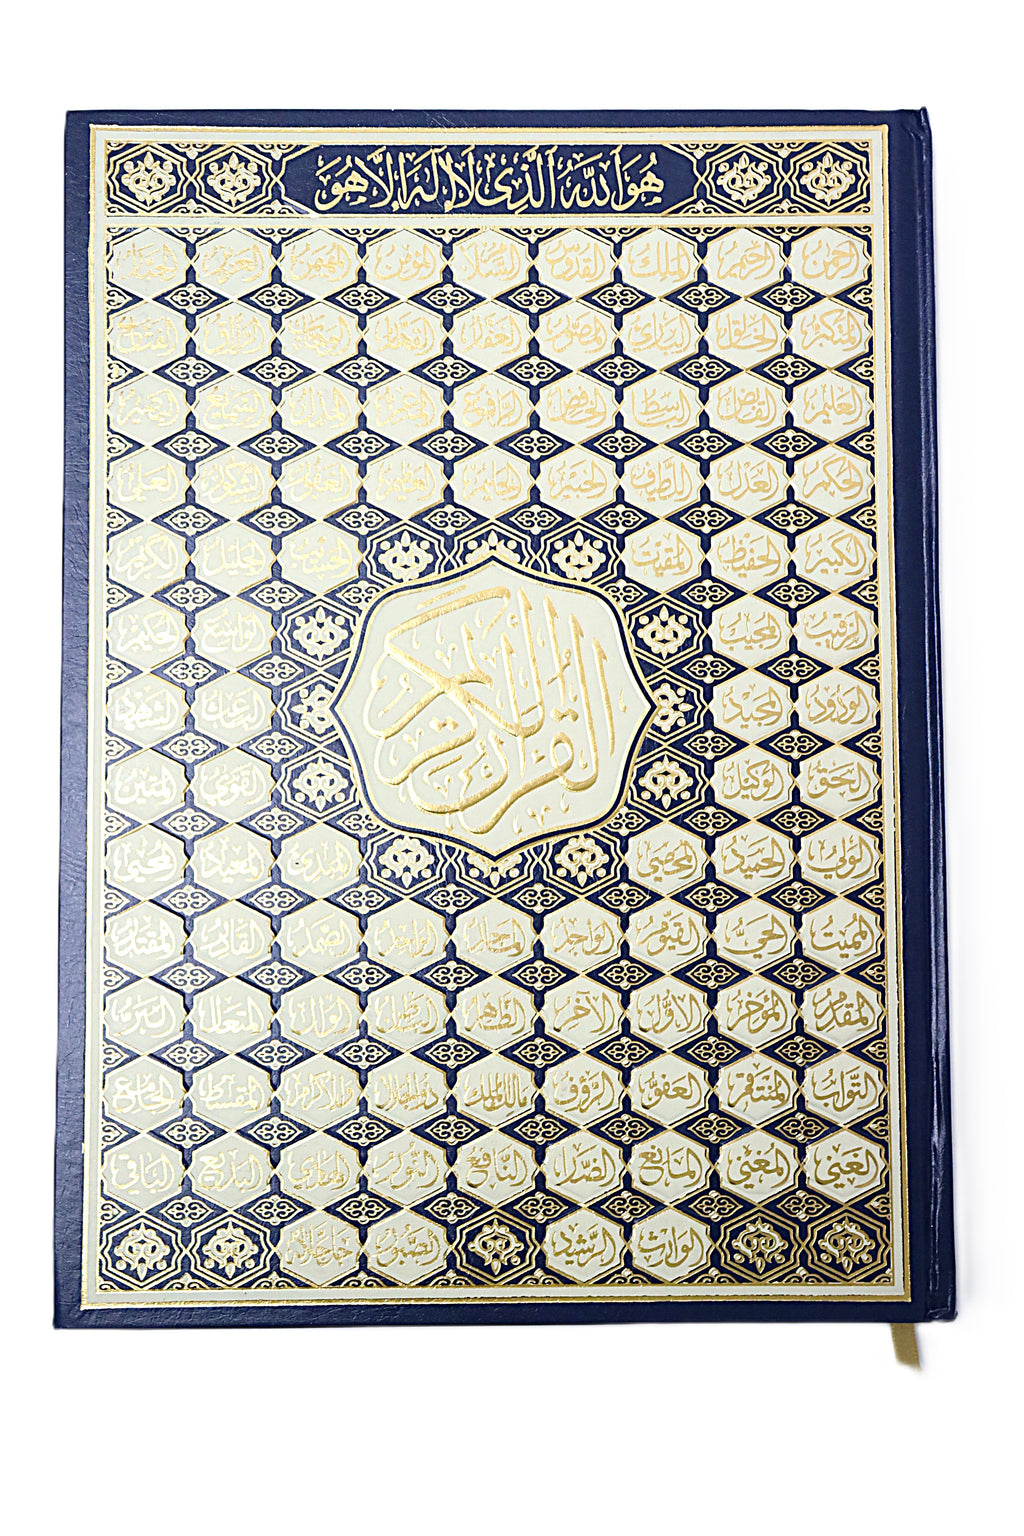 هُوَ اللَّهُ الَّذِي لَا إِلَٰهَ إِلَّا هُوَ
الرحمن الرحيم الملك القدوس السلام المؤمن المهيمن العزيز الجبار
المتكبر الخالق البارئ المصور الغفار القهار الوهاب الرزاق الفتاح
العليم القابض الباسط الخافض الرافع المعز المذل السميع البصير
الحكم العدل اللطيف الخبير الحليم العظيم الغفور الشكور العلي
الكبير الحفيظ المقيت الحسيب الجليل الكريم
الرقيب المجيب الواسع الحكيم
القرآن الكريم
الودود المجيد الباعث الشهيد
الحق الوكيل القوي المتين
الولي الحميد المحصي المبدئ المعيد المحيي
المميت الحي القيوم الواجد الماجد الواحد الصمد القادر المقتدر
المقدم المؤخر الأول الآخر الظاهر الباطن الوالي المتعال البر
التواب المنتقم العفو الرؤوف مالك الملك ذو الجلال والإكرام المقسط الجامع
الغني المغني المانع الضار النافع النور الهادي البديع الباقي
الوارث الرشيد الصبور جل جلاله